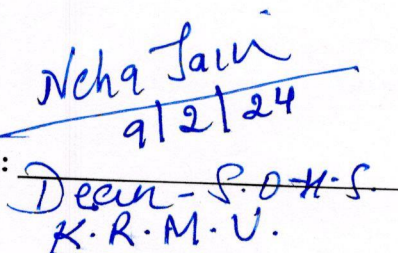 Neha Jain
9/2/24
:
Dean - S.O.H.S.
K.R.M.U.